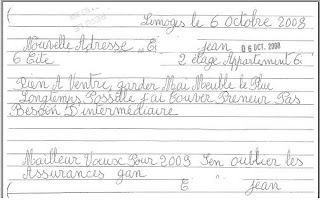 Limoges le 6 Octobre 2008
Nouvelle Adresse E jean 06 OCT. 2008
6 Cite 2 étage Appartement 6
Rien A Ventre, garder Mai Meuble le Plus
Longtemps Possille j'ai trouver Preneur Pas
Besoin D'intermédiaire
Mailleur Voeux Pour 2009 Sen oublier les
Assurances gan
E jean